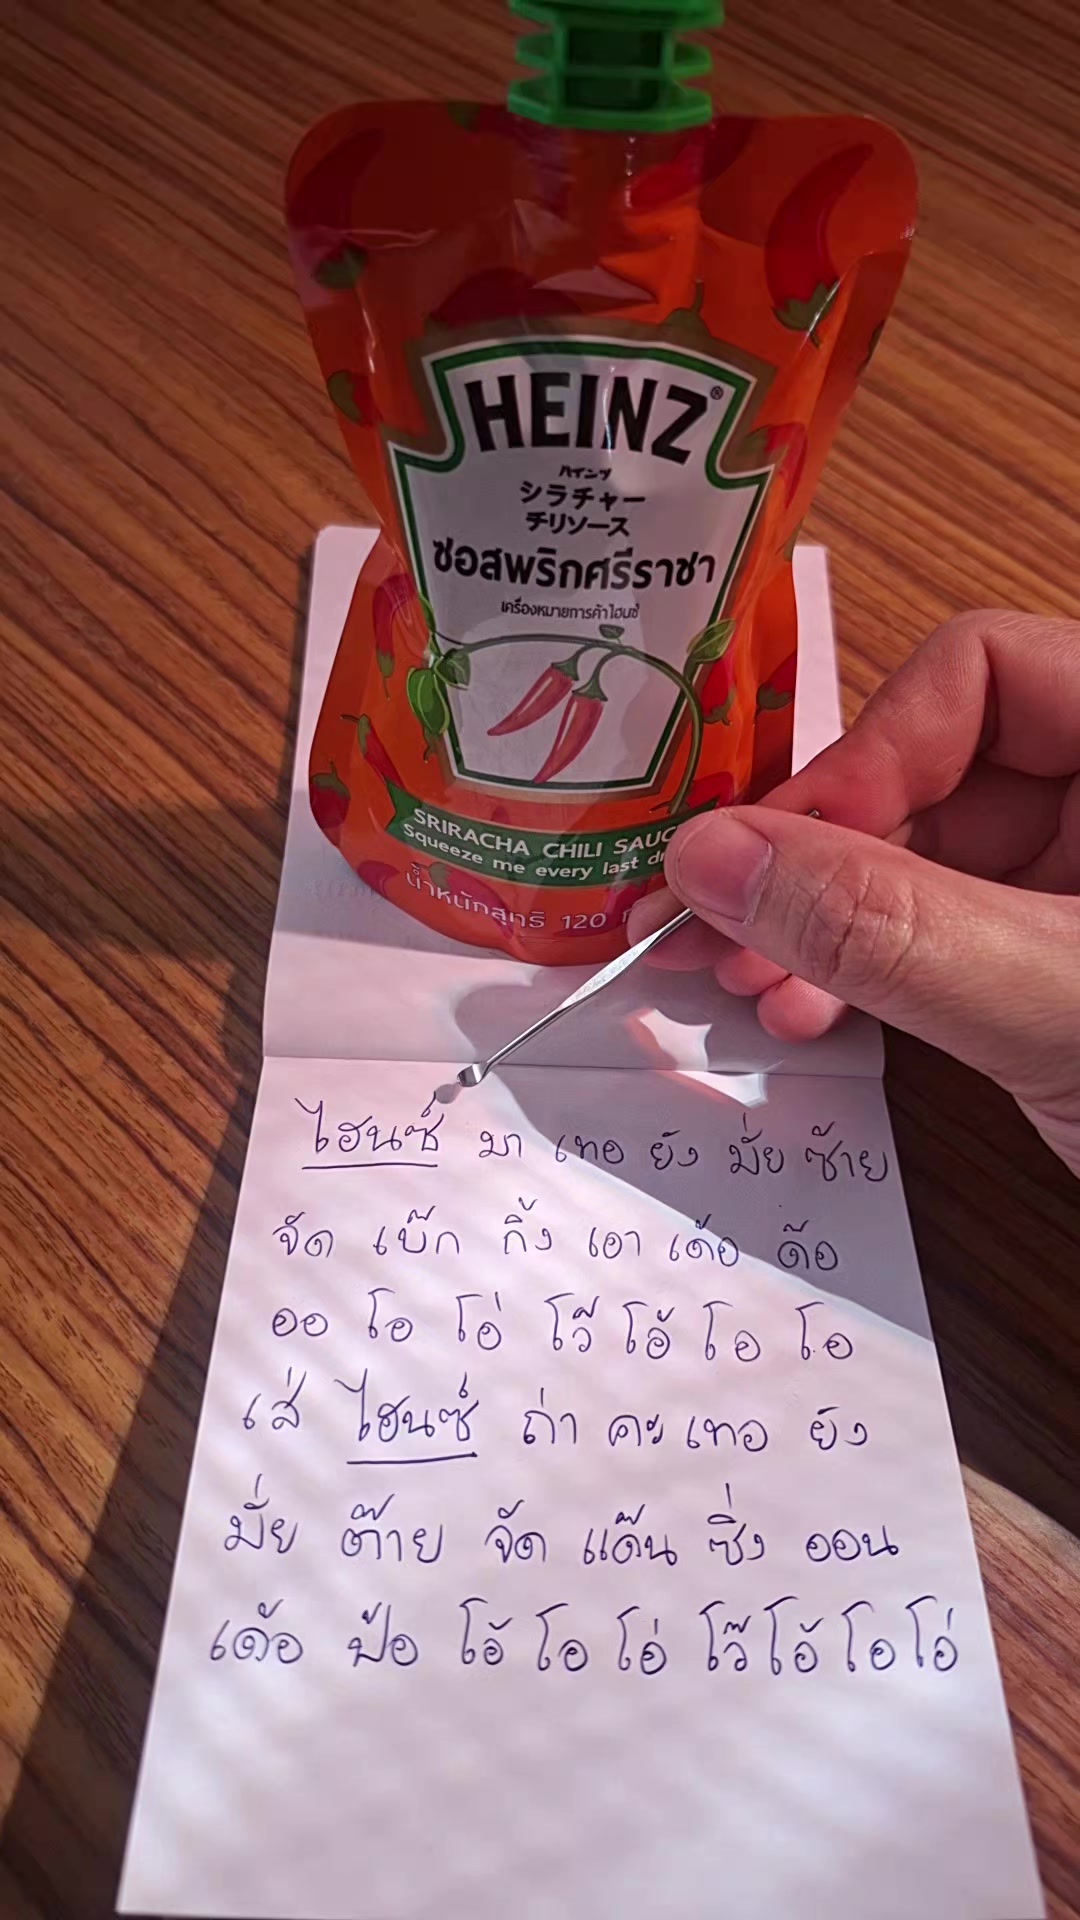 HEINZ®
ハインツ
シラチャー
チリソース
ซอสพริกศรีราชา
เครื่องหมายการค้าไฮนซ์
SRIRACHA CHILI SAUC
Squeeze me every last dr
น้ำหนักสุทธิ 120 ก
ไฮนซ์ มา เทอ ยัง มั่ย ซ้าย
จัด เบ๊ก กิ้ง เอา เด้อ ด๊อ
ออ โอ โอ่ โว๊ โอ้ โอ โอ
เส่ ไฮนซ์ ถ่า คะ เทอ ยัง
มั่ย ต๊าย จัด แด๊น ซิ่ง ออน
เด้อ ป้อ โอ้ โอ โอ่ โว๊ โอ้ โอ โอ่